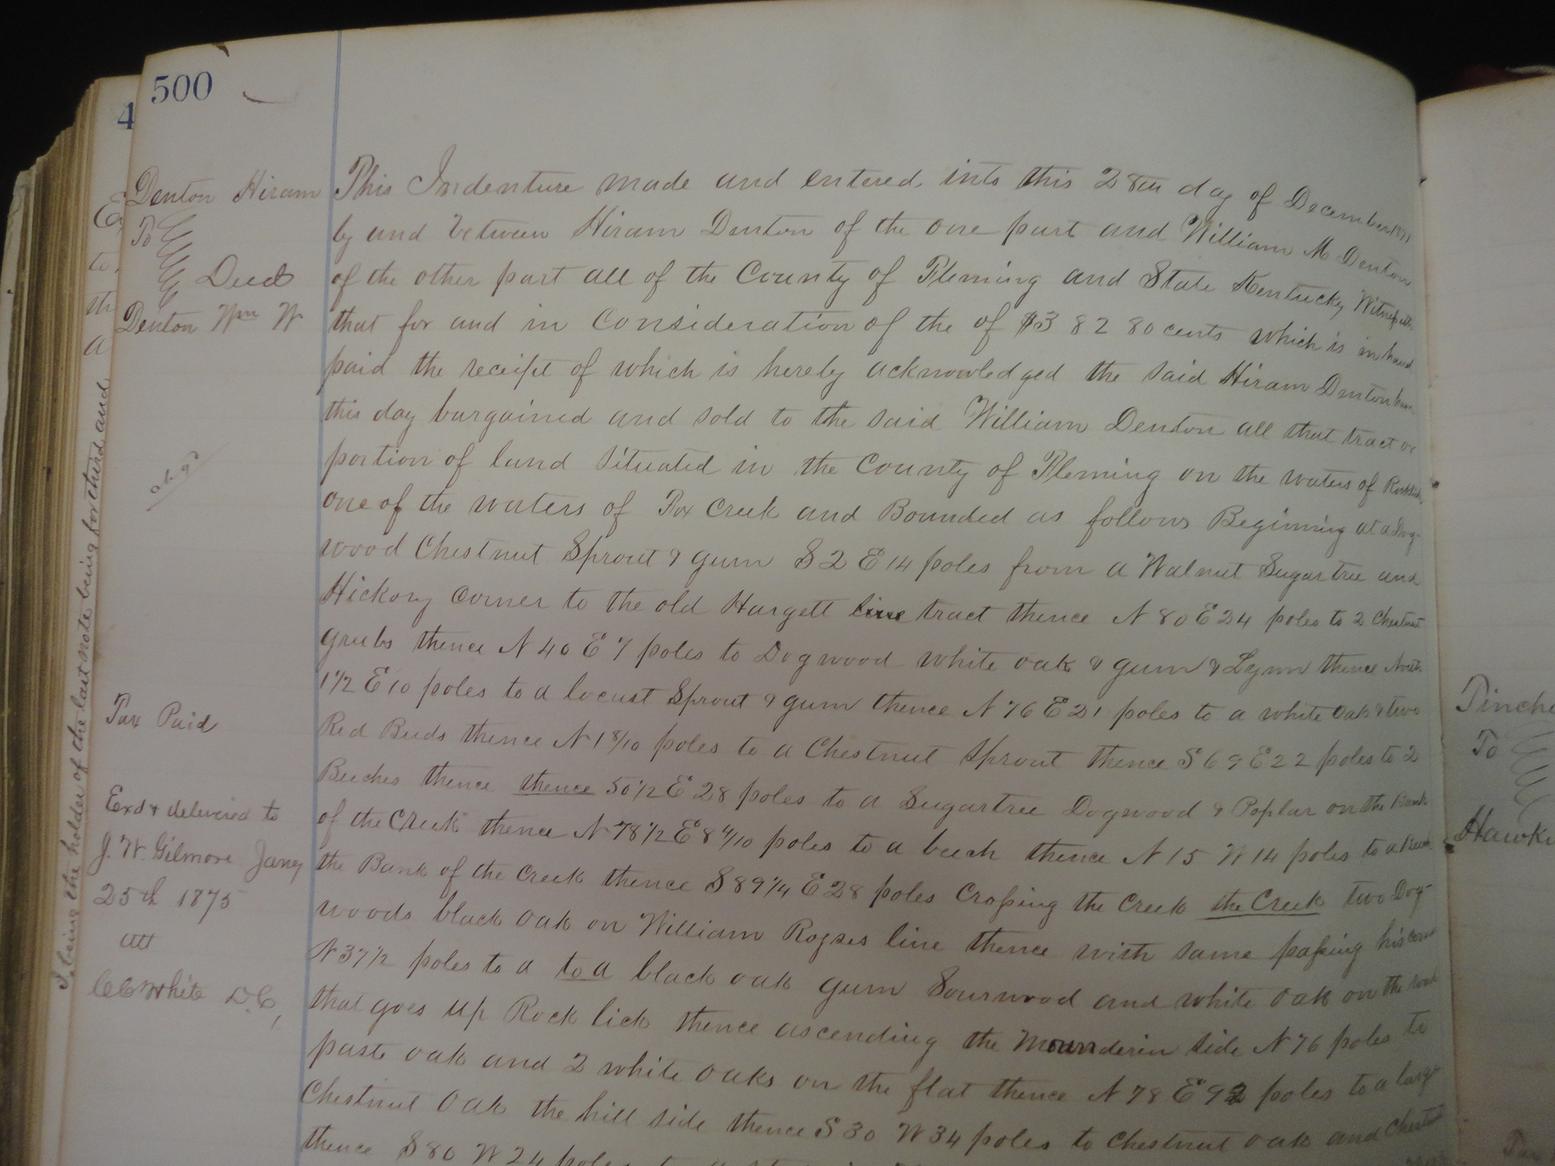 500
4
Denton Hiram
To
Deed
Denton Wm W
Tax Paid
Exd & delivered to
J. W. Gilmore Jany
25th 1875
att
CC White D.C,
I being the holder of the last note being for third and
This Indenture made and entered into this 28th day of December
by and between Hiram Denton of the one part and William M Denton
of the other part all of the County of Fleming and State Kentucky Witnesseth
that for and in Consideration of the of $3 82 80 cents which is in hand
paid the receipt of which is hereby acknowledged the said Hiram Denton
this day bargained and sold to the said William Denton all that tract or
portion of land situated in the County of Fleming on the waters of Rocklick
one of the waters of Fox Creek and Bounded as follows Beginning at a Dog-
wood Chestnut Sprout & gum S 2 E 14 poles from a Walnut Sugartree and
Hickory Corner to the old Hargett line tract thence N 80 E 24 poles to 2 Chestnut
grubs thence N 40 E 7 poles to Dogwood white oak & gum & Lynn thence North
1 1/2 E 10 poles to a locust Sprout & gum thence N 76 E 21 poles to a white Oak & two
Red Buds thence N 1 8/10 poles to a Chestnut Sprout thence S 69 E 22 poles to 2
Beeches thence thence 50 1/2 E 28 poles to a Sugartree Dogwood & Poplar on the Bank
of the Creek thence N 78 1/2 E 8 4/10 poles to a beech thence N 15 W 14 poles to a Beech
the Bank of the Creek thence S 89 1/4 E 28 poles Crossing the Creek the Creek two Dog-
woods black oak on William line thence with same passing his corner
N 37 1/2 poles to a to a black oak gum Sourwood and white oak on the
that goes up Rock lick thence ascending the side N 76 poles to
paste oak and 2 white oaks on the flat thence N 78 E 92 poles to a large
Chestnut Oak the hill side thence S 30 W 34 poles to Chestnut oak and Chestnut
thence S 80 W 24 poles
To